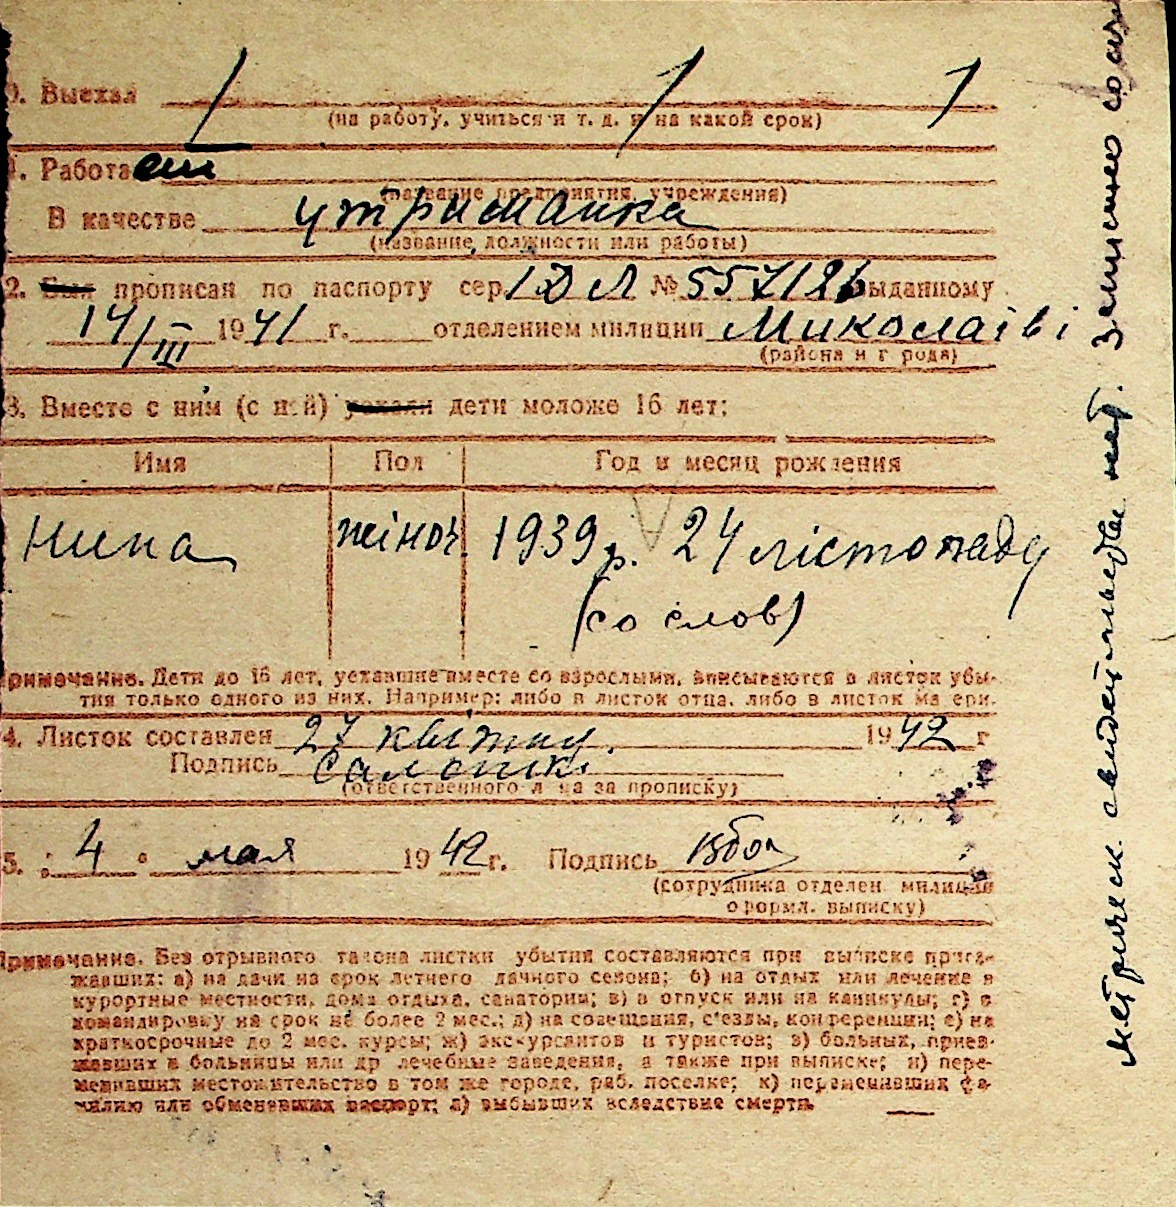 0. Выехал / / /
(на работу, учиться и т. д. и на какой срок)
1. Работает
(название предприятия, учреждения)
В качестве утриманка
(название должности или работы)
2. Был прописан по паспорту сер. IДЛ № 557126 выданному
14/III 1941 г. отделением милиции Миколаiвi
(района и города)
3. Вместе с ним (с ней) уехали дети моложе 16 лет:
Имя Пол Год и месяц рождения
Нина жiноч 1939 р. 24 лiстопаду
(со слов)
Примечание. Дети до 16 лет, уехавшие вместе со взрослыми, вписываются в листок убы-
тия только одного из них. Например: либо в листок отца, либо в листок матери.
4. Листок составлен 27 квiтну 1942 г
Подпись
(ответственного лица за прописку)
5. „4" мая 1942 г. Подпись
(сотрудника отделен. милиции
оформл. выписку)
Примечание. Без отрывного талона листки убытия составляются при выписке приез-
жавших: а) на дачи на срок летнего дачного сезона; б) на отдых или лечение в
курортные местности, дома отдыха, санатории; в) в отпуск или на каникулы; г) в
командировку на срок не более 2 мес.; д) на совещания, с'езды, конференции; е) на
краткосрочные до 2 мес. курсы; ж) экскурсантов и туристов; з) больных, приез-
жавших в больницы или др лечебные заведения, а также при выписке; и) пере-
менивших местожительство в том же городе, раб. поселке; к) переменивших фа-
милию или обменявших паспорт; л) выбывших вследствие смерти.
метрическ свидетельства нет. Записано со слов